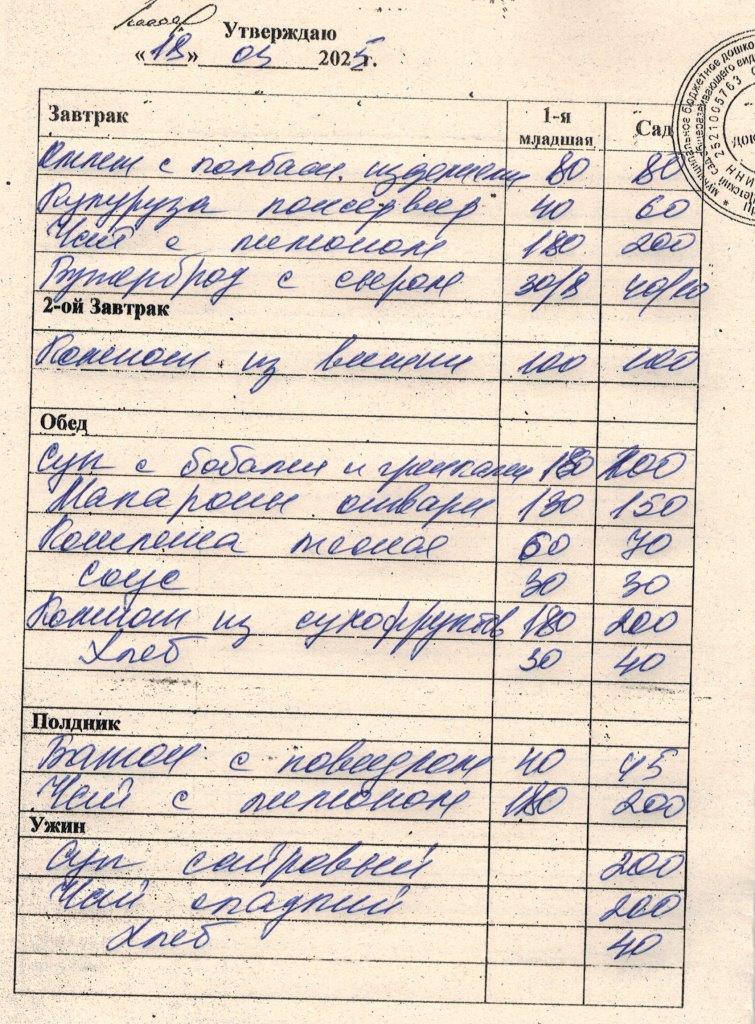 Утверждаю
«18» 03 2025г.
Завтрак 1-я младшая Сад
Омлет с колбасн. изделием 80 80
Кукуруза консервир 40 60
Чай с лимоном 180 200
Бутерброд с сыром 30/8 40/10
2-ой Завтрак
Компот из вишни 100 100
Обед
Суп с бобами и гренками 180 200
Макароны отварн 130 150
Котлета мясная 60 70
Соус 30 30
Компот из сухофруктов 180 200
Хлеб 30 40
Полдник
Батон с повидлом 40 45
Чай с лимоном 180 200
Ужин
Суп сайровый 200
Чай сладкий 200
Хлеб 40
2521005763